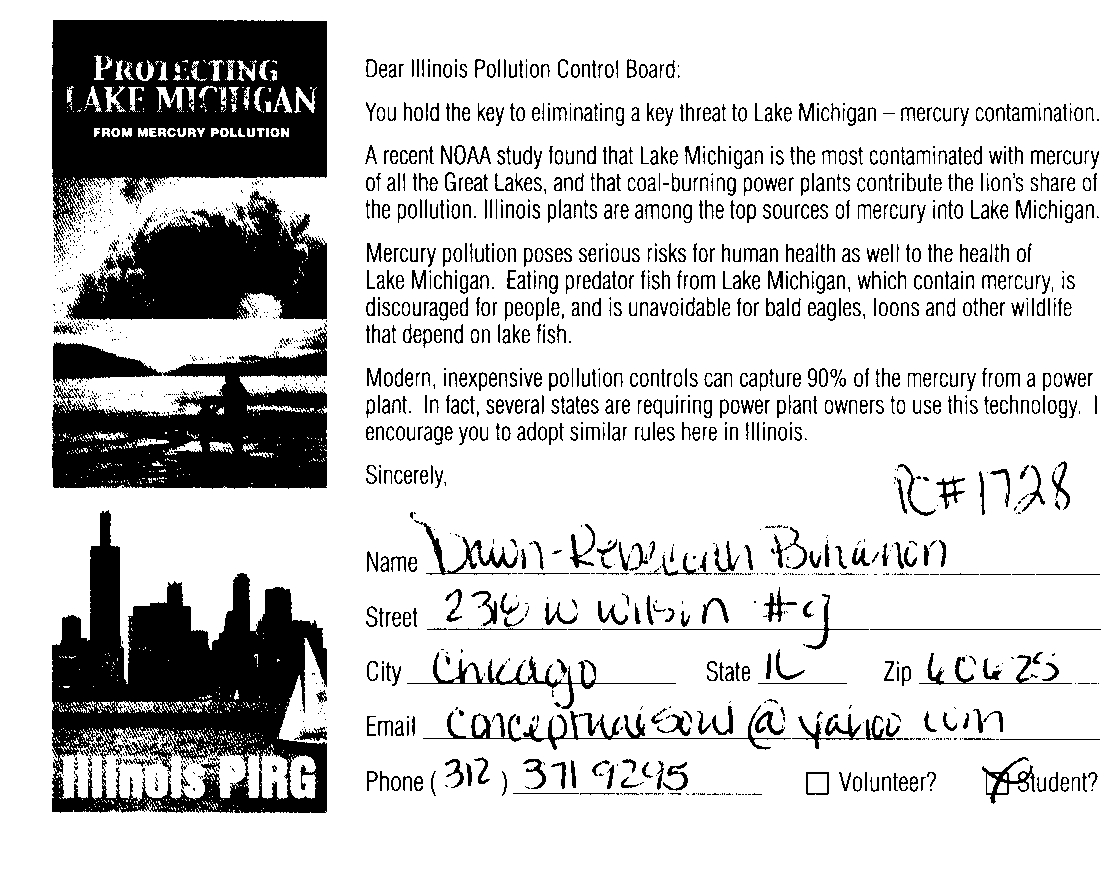 PROTECTING
LAKE MICHIGAN
FROM MERCURY POLLUTION
Dear Illinois Pollution Control Board:
You hold the key to eliminating a key threat to Lake Michigan – mercury contamination.
A recent NOAA study found that Lake Michigan is the most contaminated with mercury
of all the Great Lakes, and that coal-burning power plants contribute the lion's share of
the pollution. Illinois plants are among the top sources of mercury into Lake Michigan.
Mercury pollution poses serious risks for human health as well to the health of
Lake Michigan. Eating predator fish from Lake Michigan, which contain mercury, is
discouraged for people, and is unavoidable for bald eagles, loons and other wildlife
that depend on lake fish.
Modern, inexpensive pollution controls can capture 90% of the mercury from a power
plant. In fact, several states are requiring power plant owners to use this technology. I
encourage you to adopt similar rules here in Illinois.
Sincerely,
PC#1728
Name Dawn-Rebeccah Buhanon
Street 2318 W Wilson #
City Chicago State IL Zip 60625
Email conceptualsoul@yahoo.com
Phone (312) 371 9295 Volunteer? Student?
Illinois PIRG